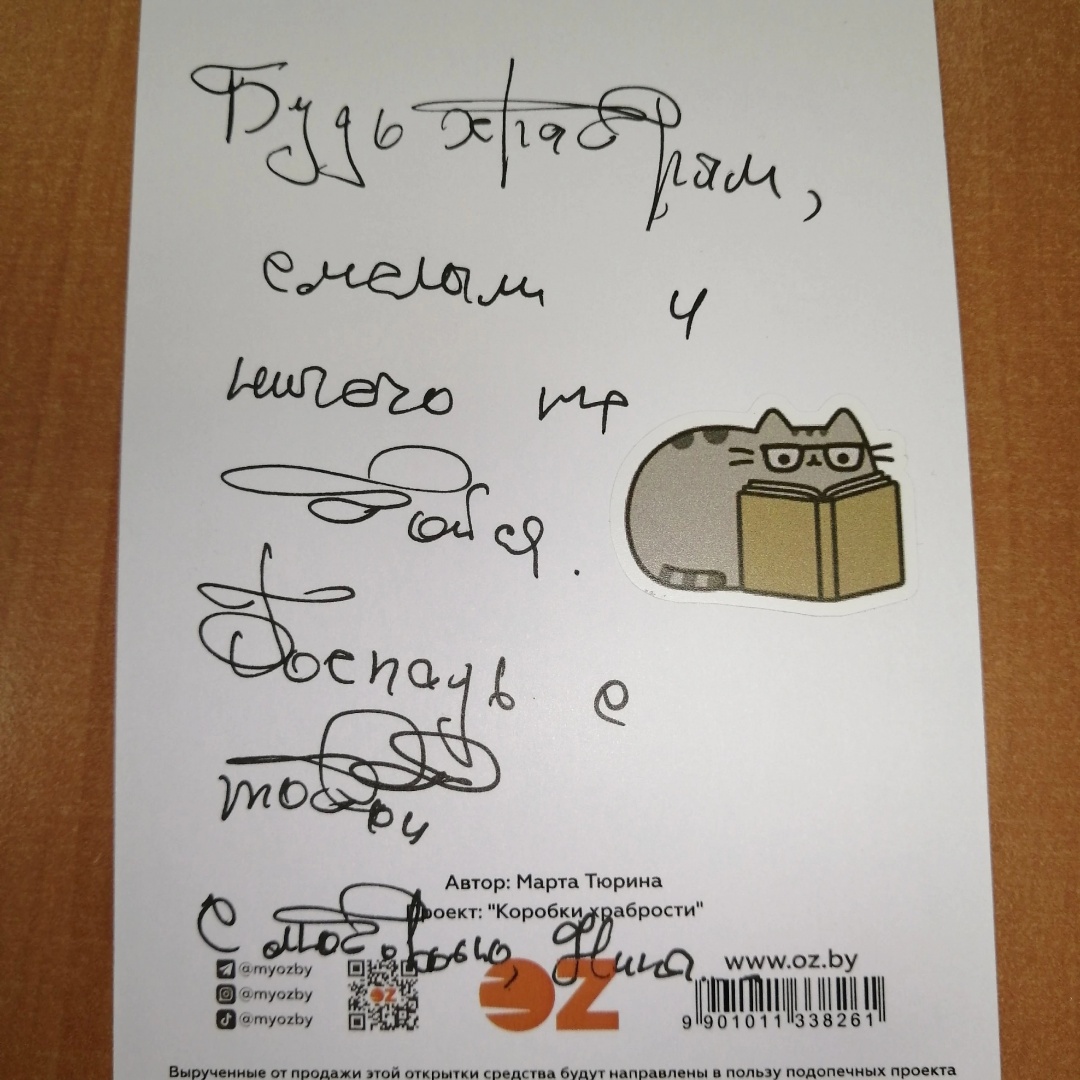 Будь храбрым,
смелым и
ничего не
бойся.
Господь с
тобой
Автор: Марта Тюрина
Проект: "Коробки храбрости"
С любовью, Нина.
www.oz.by
@myozby
@myozby
@myozby
OZ
OZ
9 901011 338261
Вырученные от продажи этой открытки средства будут направлены в пользу подопечных проекта